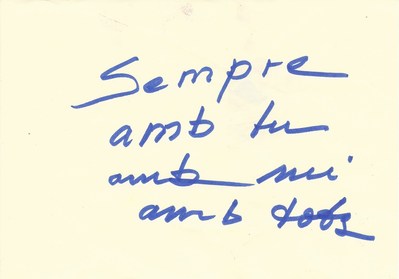 Sempre
amb tu
amb mi
amb tots